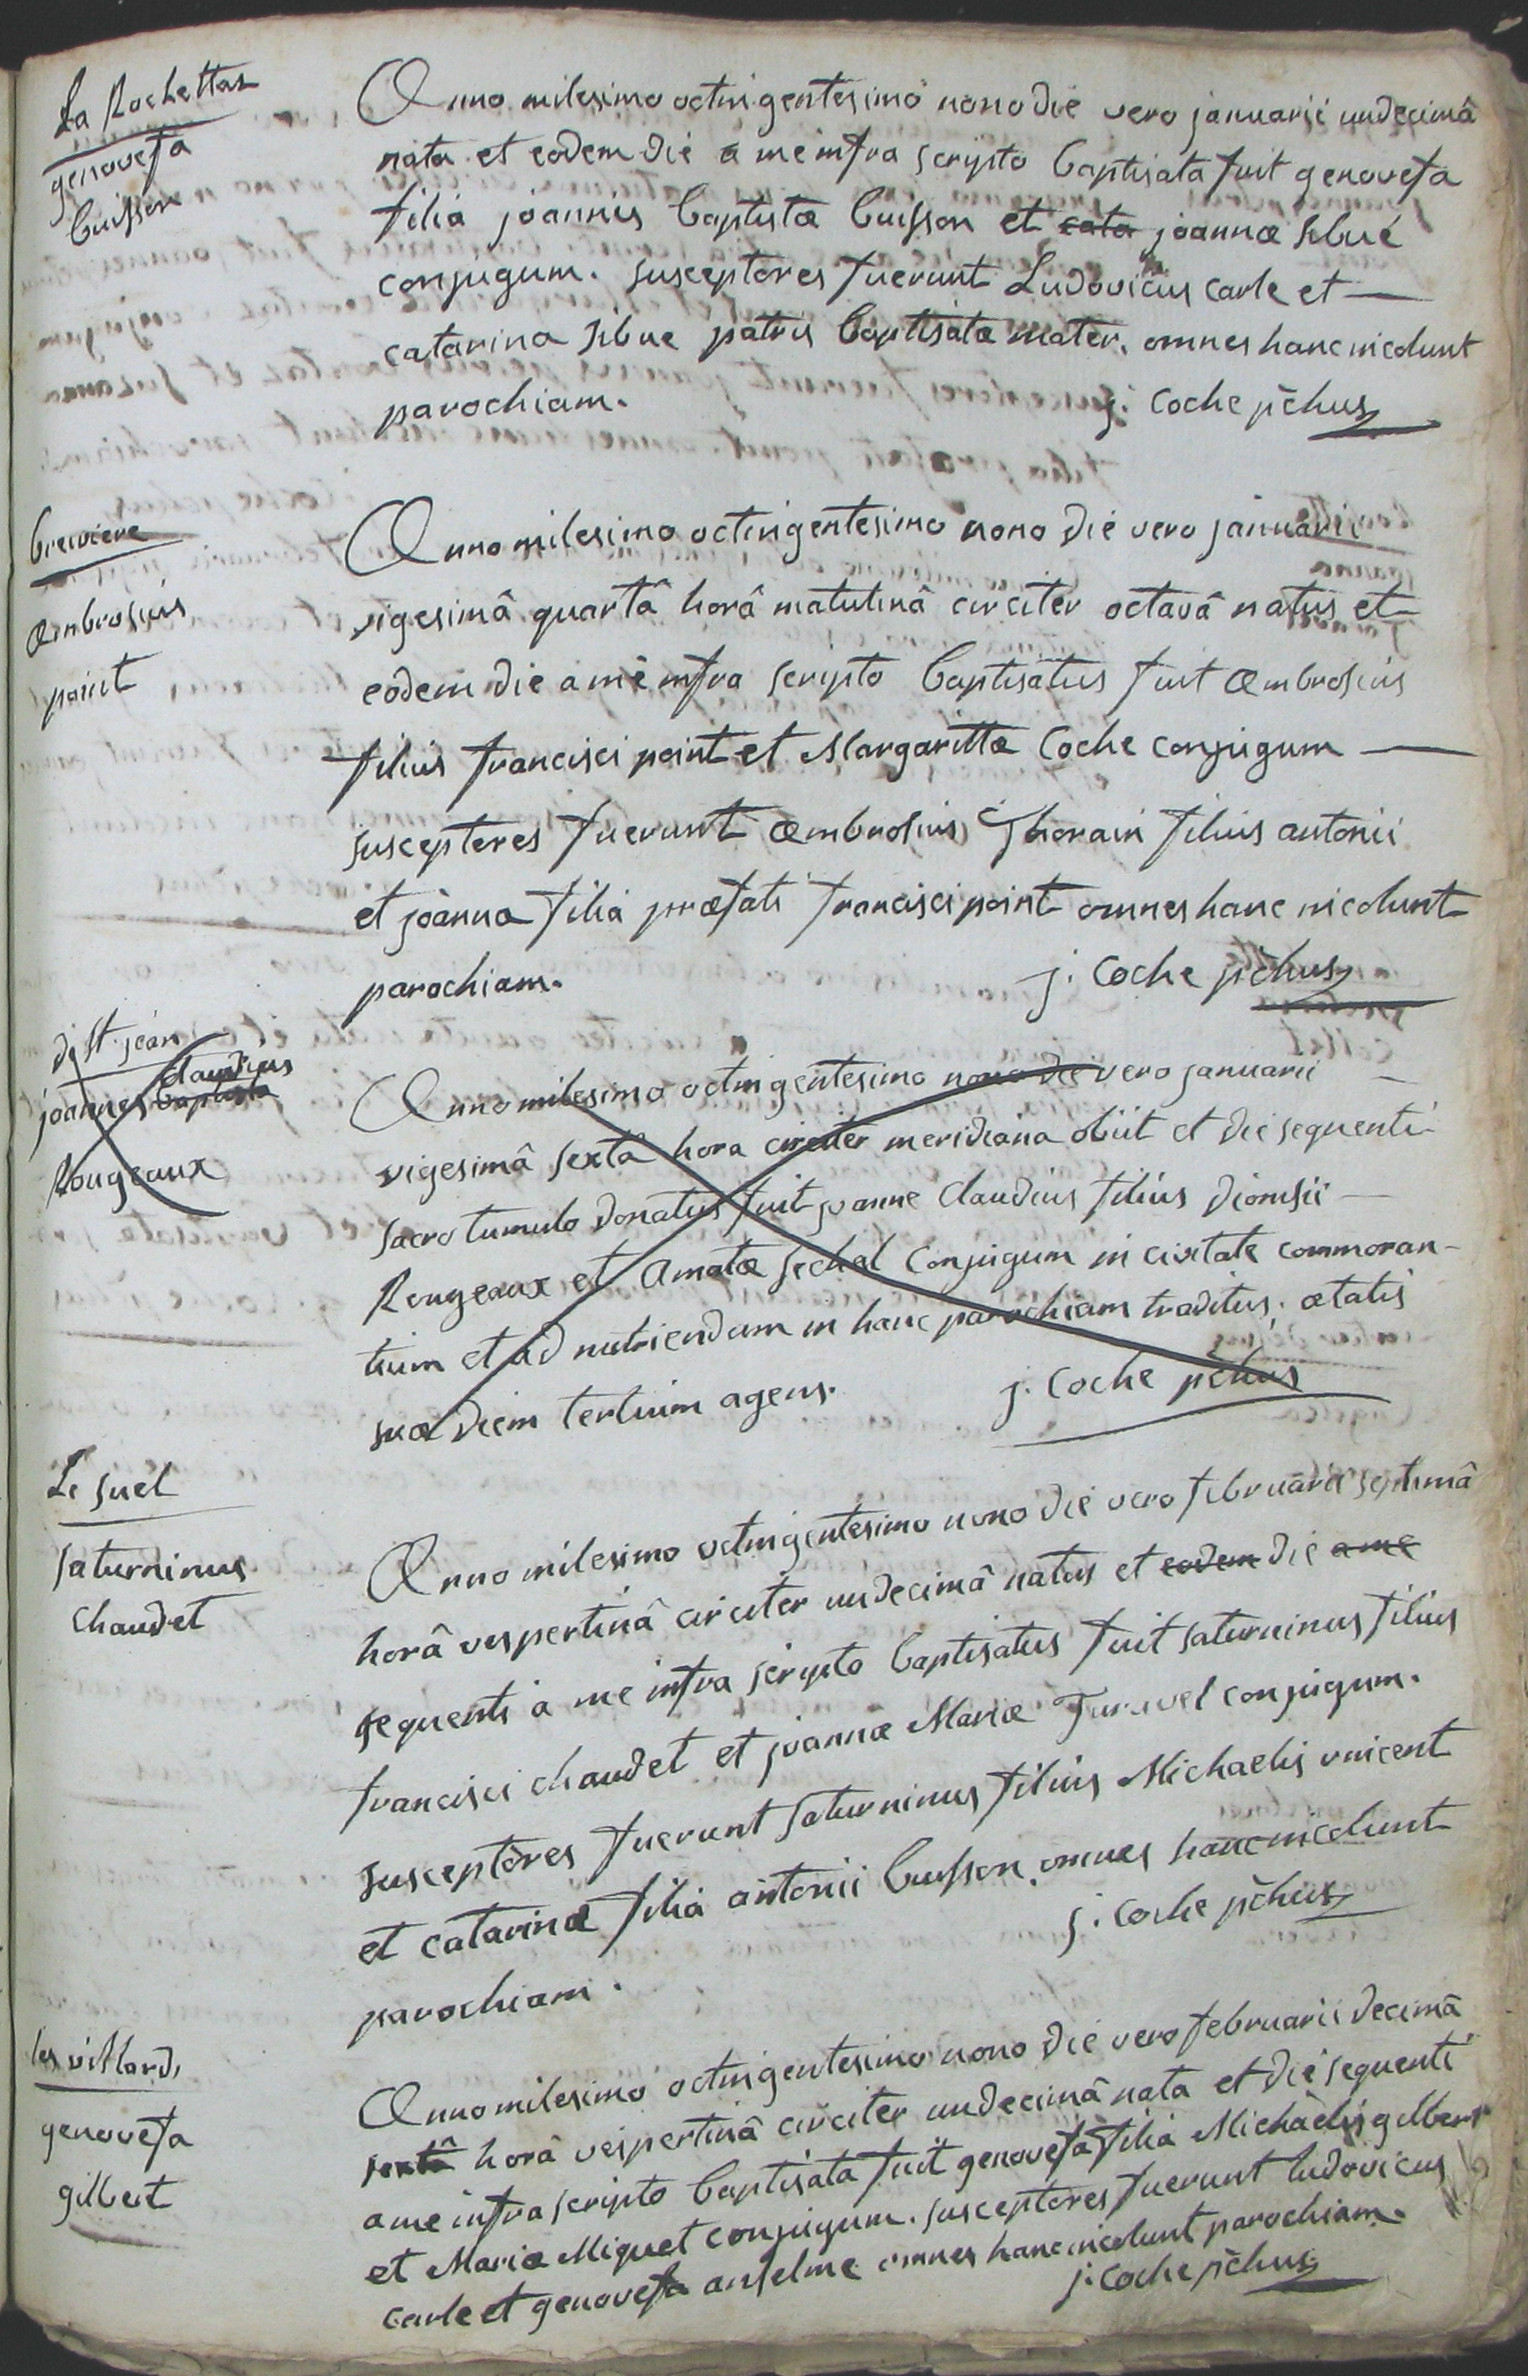 La Rochettaz
genovefa
buisson
Anno milesimo octingentesimo nono die vero januarii undecimâ
nata et eodem die a me infra scripto baptisata fuit genovefa
filia joannis baptistæ buisson et cata joannæ sibué
conjugum. susceptores fuerunt Ludovicus carle et
catarina sibue patris baptisatæ mater. omnes hanc incolunt
parochiam.
j. Coche pchus
breiviere
ambrosius
point
Anno milesimo octingentesimo nono die vero januarii
vigesimâ quartâ horâ matutinâ circiter octavâ natus et
eodem die a me infra scripto baptisatus fuit ambrosius
filius francisci point et Margarittæ Coche conjugum
susceptores fuerunt ambrosius Thorain filius antonii
et joanna filia præfati francisci point omnes hanc incolunt
parochiam.
j. Coche pchus
st. jean
claudius
joannes baptista
Rougeaux
Anno milesimo octingentesimo nono die vero januarii
vigesimâ sextâ hora circiter meridiana obiit et die sequenti
sacro tumulo donatus fuit joanne claudius filius dionisii
Rougeaux et Amatæ sechal conjugum in civitate commoran-
tium et ad nutriendum in hanc parochiam traditus, ætatis
suæ diem tertium agens.
j. Coche pchus
Le suel
saturninus
chaudet
Anno milesimo octingentesimo nono die vero februarii septimâ
horâ vespertinâ circiter undecimâ natus et eodem die a me
sequenti a me infra scripto baptisatus fuit saturninus filius
francisci chaudet et joannæ Mariæ conjugum.
susceptores fuerunt saturninus filius Michaelis vincent
et catarina filia antonii buisson. omnes hanc incolunt
parochiam.
j. Coche pchus
les villards
genovefa
gilbert
Anno milesimo octingentesimo nono die vero februarii decimâ
sextâ horâ vespertinâ circiter undecimâ nata et die sequenti
a me infra scripto baptisata fuit genovefa filia Michaelis gilbert
et Mariæ Miquet conjugum. susceptores fuerunt ludovicus
carle et genovefa anselme omnes hanc incolunt parochiam.
j. Coche pchus